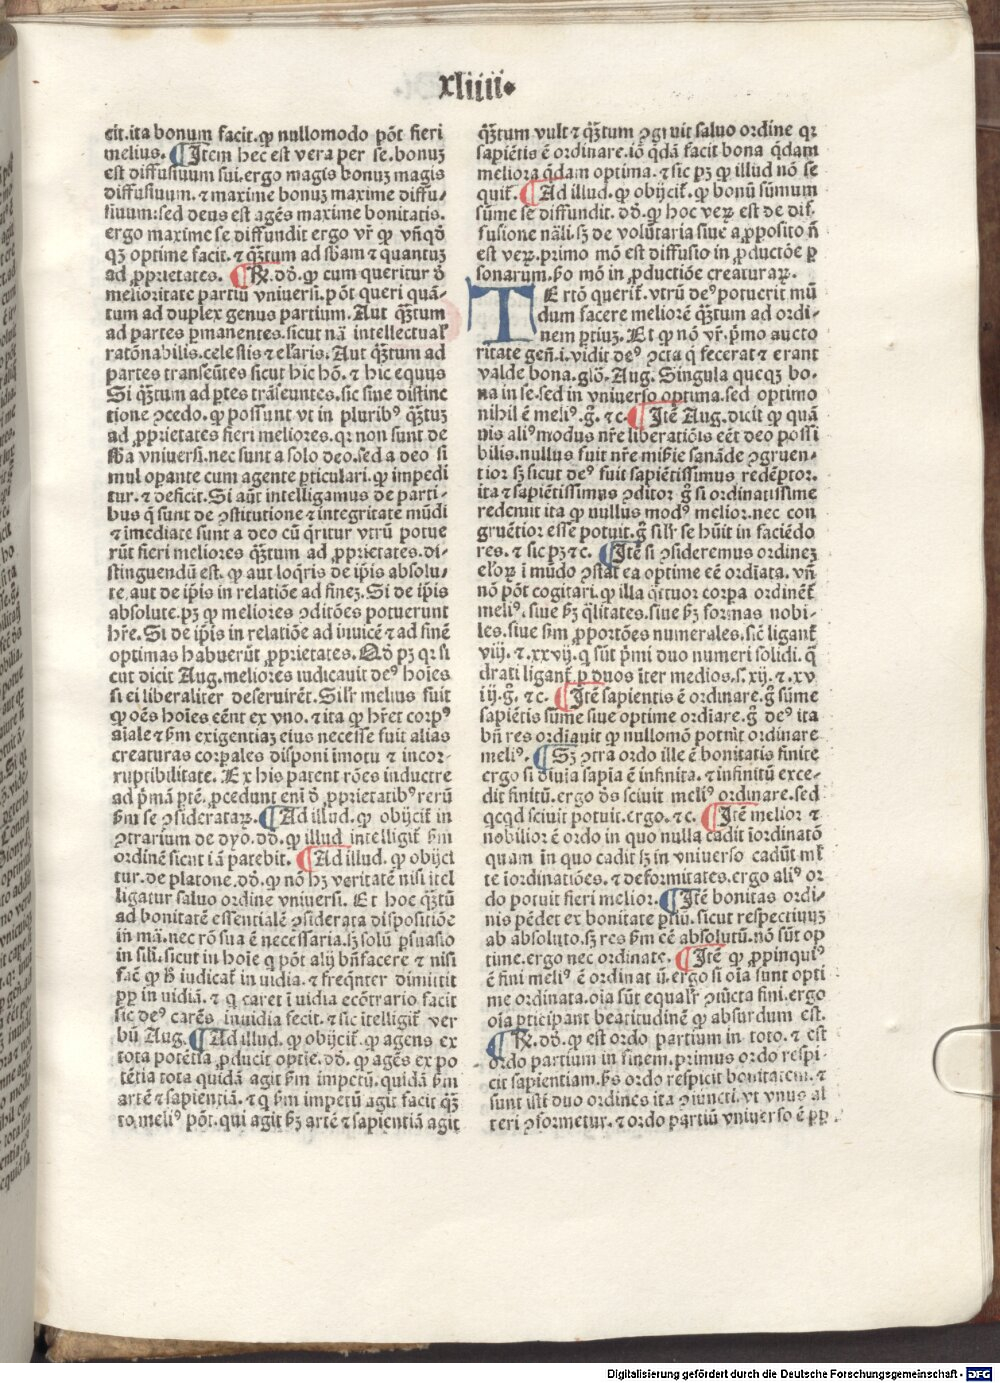 xliiii.
cit.ita bonum facit.ꝙ nullomodo põt fieri
melius. ¶Item hec est vera per se.bonuꝫ
est diffusiuum sui.ergo magis bonuꝫ magis
diffusiuum.⁊ maxime bonuꝫ maxime diffu⸗
siuum:sed deus est agẽs maxime bonitatis.
ergo maxime se diffundit ergo vr̃ ꝙ vñqđꝫ
qꝫ optime facit.⁊ qꝫ̃tum ad sb̃am ⁊ quantuꝫ
ad ꝓprietates. ¶℞.dđ.ꝙ cum queritur đ
melioritate partiũ vniuersi.põt queri quã⸗
tum ad duplex genus partium. Aut qꝫ̃tum
ad partes ꝑmanentes.sicut nã intellectual̃
ratõnabilis.celestis ⁊ el̃aris: Aut qꝫ̃tum ad
partes transeũtes sicut hic hõ.⁊ hic equus
Si qꝫ̃tum ad ꝑtes trãseuntes.sic sine distinc
tione ꝯcedo.ꝙ possunt vt in pluribꝰ qꝫ̃tuꝫ
ad ꝓprietates fieri meliores.qꝛ non sunt de
sb̃a vniuersi.nec sunt a solo deo.sed a deo si
mul opante cum agente ꝑticulari.ꝙ impedi
tur.⁊ deficit.Si aũt intelligamus de parti⸗
bus q̃ sunt de ꝯstitutione ⁊ integritate mũdi
⁊ ĩmediate sunt a deo cũ q̃ritur vtrũ potue
rũt fieri meliores qꝫ̃tum ad ꝓprietates.di⸗
stinguendũ est.ꝙ aut loq̃ris de ip̃is absolu⸗
te.aut de ip̃is in relatiõe ad fineꝫ.Si de ip̃is
absolute.pꝫ ꝙ meliores ꝯditões potuerunt
hr̃e.Si de ip̃is in relatiõe ad inuicẽ ⁊ ad finẽ
optimas habuerũt ꝓprietates.Qđ pꝫ qꝛ si
cut dicit Aug.meliores iudicauit deꝰ hoĩes
si ei liberaliter deseruirẽt.Silr̃ melius fuit
ꝙ oẽs hoĩes eẽnt ex vno.⁊ ita ꝙ hr̃et corpꝰ
aĩale ⁊ ẜm exigentiaꝫ eius necesse fuit alias
creaturas corꝑales disponi ĩmotu ⁊ incor⸗
ruptibilitate. Ex his patent rões inductre
ad ṗmã ꝑtẽ.ꝓcedunt eni đ ꝓprietatibꝰ rerũ
ẜm se ꝯsideratarꝫ.¶Ad illud.ꝙ obijcit̃ in
ꝯtrarium de dyõ.dđ.ꝙ illud intelligit̃ ẜm
ordinẽ sicut iã patebit. ¶Ad illud.ꝙ obijci
tur.de platone.dđ.ꝙ nõ hꝫ veritatẽ nisi ĩtel
ligatur saluo ordine vniuersi. Et hoc qꝫ̃tũ
ad bonitatẽ essentialẽ ꝯsiderata dispositiõe
in mã.nec rõ sua ẽ necessaria.sꝫ solũ ꝑsuasio
in sili.sicut in hoĩe q põt alij bñfacere ⁊ nisi
faẽ ꝙ ꝉ iudicat̃ in vidia.⁊ freq̃nter dimittit
ꝓp in uidiã.⁊ q caret ĩ uidia ecõtrario facit
sic deꝰ carẽs inuidia fecit.⁊ sic ĩtelligit̃ ver
bũ Aug.¶Ad illud.ꝙ obijcit̃.ꝙ agens ex
tota potẽtia ꝓducit optĩe.dđ.ꝙ agẽs ex po
tẽtia tota quidã agit ẜm impetũ.quidã ẜm
artẽ ⁊ sapientiã.⁊ q ẜm impetũ agit facit qꝫ̃
to meliꝰ põt.qui agit ẜm artẽ ⁊ sapientiã agit
qꝫ̃tum vult ⁊ qꝫ̃tum ꝯgruit saluo ordine qꝛ
sapiẽtis ẽ ordinare.iõ q̃dã facit bona q̃dam
meliora q̃dam optima.⁊ sic pꝫ ꝙ illud nõ se
quit̃.¶Ad illud.ꝙ obijcit̃.ꝙ bonũ sũmum
sũme se diffundit.dđ.ꝙ hoc veꝝ est de dif⸗
fusione nãli.sꝫ de volũtaria siue a ꝓposito ñ
est veꝝ.primo mõ est diffusio in ꝓductõe ꝑ
sonarum.ẜo mõ in ꝓductiõe creaturaꝝ.
TErtõ querit̃.vtrũ deꝰ potuerit mũ
dum facere meliorẽ qꝫ̃tum ad ordi⸗
nem ꝑtiuꝫ.Et ꝙ nõ vr̃.ṗmo aucto
ritate geñ.i.vidit deꝰ ꝯcta q̃ fecerat ⁊ erant
valde bona.glõ.Aug.Singula queqꝫ bo⸗
na in se.sed in vniuerso optima.sed optimo
nihil ẽ meliꝰ.g̃.⁊c.¶Itẽ Aug.dicit ꝙ quã
uis aliꝰ modus nr̃e liberatiõis eẽt deo possi
bilis.nullus fuit nr̃e mis̃ie sanãde ꝯgruen⸗
tior.sꝫ sicut deꝰ fuit sapiẽtissimus redẽptor.
ita ⁊ sapiẽtissimus ꝯditor.g̃ si ordinatissime
redemit ita ꝙ nullus modꝰ melior.nec con
gruẽtior esse potuit.g̃ silr̃ se hũit in faciẽdo
res.⁊ sic pꝫ ⁊c. ¶Itẽ si ꝯsideremus ordineꝫ
el̃oꝝ ĩ mũdo ꝯstat ea optime eẽ ordĩata.vñ
nõ põt cogitari.ꝙ illa q̃tuor corpa ordinẽt̃
meliꝰ.siue ẜꝫ q̃litates.siue ẜꝫ formas nobi⸗
les.siue ẜm ꝓportões numerales.sic̃ ligant̃
viij.⁊.xxvij.q̃ sũt ṗmi duo numeri solidi.q̃
drati ligant̃ ꝑ duos ĩter medios.s.xij.⁊.xv
iij.g̃.⁊c. ¶Itẽ sapientis ẽ ordinare.g̃ sũme
sapiẽtis sũme siue optime ordĩare.g̃ deꝰ ita
bñ res ordĩauit ꝙ nullomõ potuit ordinare
meliꝰ. ¶Sꝫ ꝯtra ordo ille ẽ bonitatis finite
ergo si diuĩa sapĩa ẽ infinita.⁊ infinitũ exce⸗
dit finitũ.ergo đs sciuit meliꝰ ordinare.sed
qcqd sciuit potuit.ergo.⁊c. ¶Itẽ melior ⁊
nobilior ẽ ordo in quo nulla cadit ĩordinatõ
quam in quo cadit sꝫ in vniuerso cadũt ml̃
te ĩordinatiões.⁊ deformitates.ergo aliꝰ or
do potuit fieri melior.¶Itẽ bonitas ordi⸗
nis pẽdet ex bonitate ꝑtiũ.sicut respectiuuꝫ
ab absoluto.sꝫ res ẜm eẽ absolutũ.nõ sũt op
time.ergo nec ordinate. ¶Itẽ ꝙ ꝓpinquiꝰ
ẽ fini meliꝰ ẽ ordinatũ.ergo si oĩa sunt opti
me ordinata.oĩa sũt equalr̃ ꝯiũcta fini.ergo
oĩa ꝑticipant beatitudinẽ ꝙ absurdum est.
¶℞.dđ.ꝙ est ordo partium in toto.⁊ est
ordo partium in finem.primus ordo respi⸗
cit sapientiam.ẜs ordo respicit bonitatem.⁊
sunt isti duo ordines ita ꝯiuncti.vt vnus al
teri ꝯformetur.⁊ ordo partiũ vniuerso ẽ ꝓp
Digitalisierung gefördert durch die Deutsche Forschungsgemeinschaft - DFG